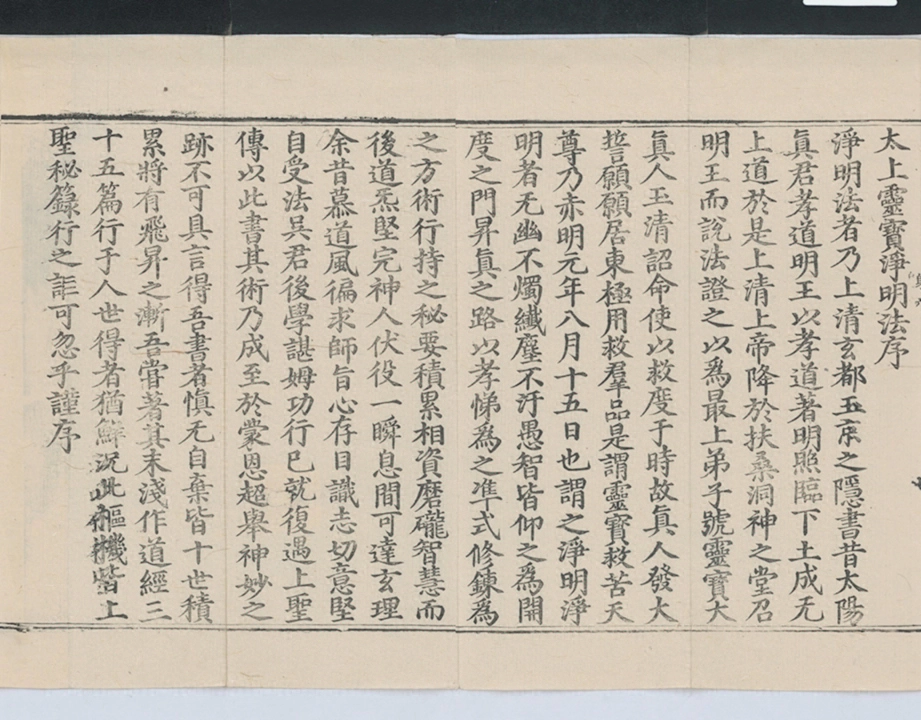 太上靈寶淨明法序
淨明法者乃上清玄都玉京之隱書昔太陽
眞君孝道明王以孝道著明照臨下土成无
上道於是上清上帝降於扶桑洞神之堂召
明王而說法證之以爲最上弟子號靈寶大
眞人玉清詔命使以救度于時故眞人發大
誓願願居東極用救羣品是謂靈寶救苦天
尊乃赤明元年八月十五日也謂之淨明淨
明者无幽不燭纖塵不汙愚智皆仰之爲開
度之門昇眞之路以孝悌爲之准式修鍊爲
之方術行持之秘要積累相資磨礲智慧而
後道炁堅完神人伏役一瞬息間可達玄理
余昔慕道風徧求師旨心存目識志切意堅
自受法吳君後學諶姆功行已就復遇上聖
傳以此書其術乃成至於蒙恩超舉神妙之
跡不可具言得吾書者愼无自棄皆十世積
累將有飛昇之漸吾嘗著其末淺作道經三
十五篇行于人世得者猶鮮況此樞機皆上
聖秘籙行之詎可忽乎謹序